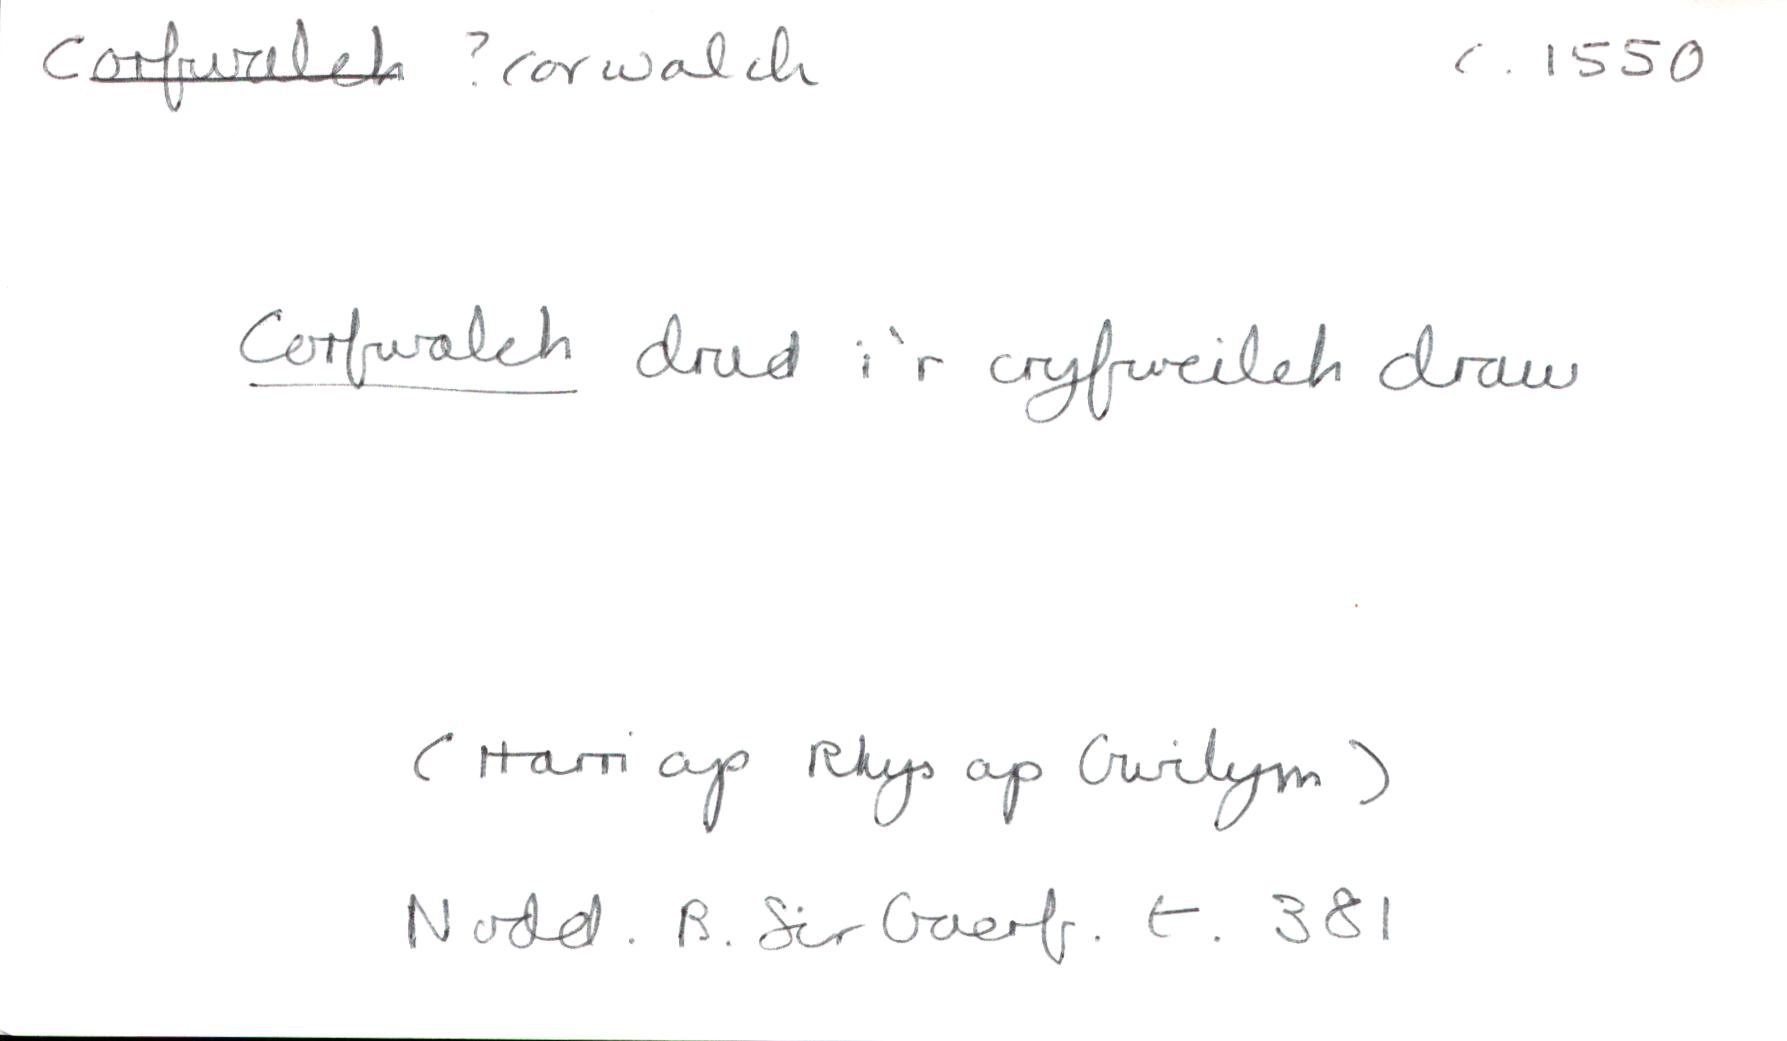 Corfwalch ?corwalch c. 1550
Corfwalch drud i'r cryfweilch draw
(Harri ap Rhys ap Gwilym)
Nodd. B. Sir Gaerf. t. 381